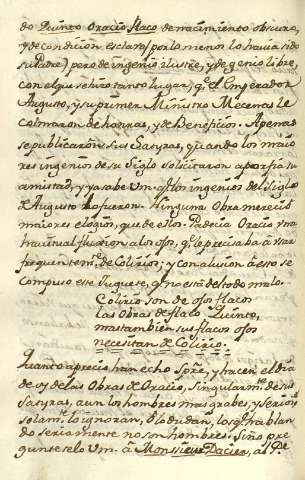 do Quinto Oracio flaco de nacimiento obscuro,
y de condicion esclavo (por lo menos lo havia sido
su Padre) pero de ingenio ilustre, y de genio libre,
con el que se hizo tanto lugar, q.e el Emperador
Augusto, y su primer Ministro Mecenas le
colmaron de honras, y de Beneficios. Apenas
se publicaron sus Satyras, quando los maio
res ingenios de su Siglo solicitaron a porfia su
amistad, y ya sabe Vm. q.e los ingenios del Siglo
de Augusto lo fueron. Ninguna Obra mereció
maiores elogios, que de ellos. Padecia Oracio una
havitual fluxion a los ojos, q.e le precisaba á usar
frequentem.te de Colirios; y con alusion á esto se
compuso este Juguete, q.e no está del todo malo.
Colirio son de ojos flacos
las Obras de flaco Quinto,
mas tambien sus flacos ojos
necesitan de Colirio.
Quanto aprecio han echo spre, y hacen el dia
de oy de las Obras de Oracio, singularm.te de sus
Satyras, aun los hombres mas grabes, y serios,
solam.te lo ignoran, ó lo dudan, los q.e hablan
do seriamente no son hombres. Sino pre
gunteselo Vm. á Monsieur Dacier, al P.e